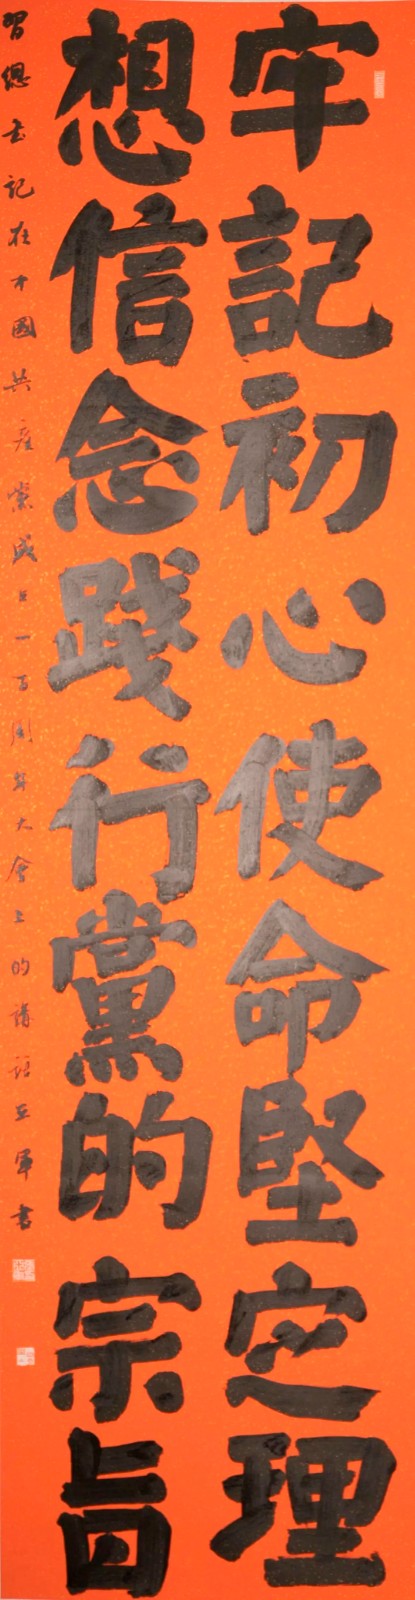 牢記初心使命堅定理
想信念踐行黨的宗旨
習總書記在中國共產黨成立一百周年大會上的講話 亚軍書